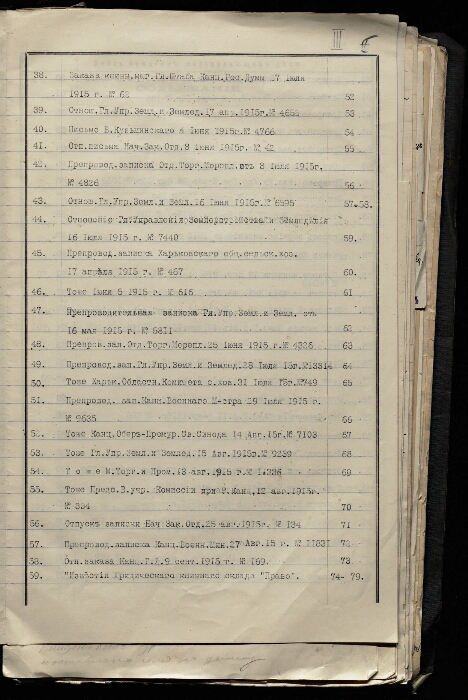 III
38. Заказа книжн.маг.Гл.Штаба Канц.Гос.Думы 17 Июля
1915 г. № 62 52
39. Отнош.Гл.Упр.Земл.и Землед.17 апр.1915г.№ 4654 53
40. Письмо В.Кузьминскаго 4 Июня 1915г.№ 4766 54
41. Отп.письма Нач.Зак.Отд.8 Июня 1915г. № 42 55
42. Препровод.записка Отд.Торг.Морепл.отъ 8 Июня 1915г.
№ 4826 56
43. Отнош.Гл.Упр.Земл.и Земл.16 Июня 1915г.№ 6595 57-58.
44. Отношеніе Гл.Управленія Землеустройства и Земледѣлія
16 Июля 1915 г. № 7440 59.
45. Препровод.записка Харьковскаго общ.сельск.хоз.
17 апрѣля 1915 г. № 467 60.
46. Тоже Июня 5 1915 г. № 616 61
47. Препроводительная записка Гл.Упр.Земл.и Земл. отъ
16 мая 1915 г. № 5811 62
48. Препров.зап.Отд.Торг.Морепл.25 Июня 1915 г.№ 4326 63
49. Препровод.зап.Гл.Упр.Земл.и Землед.28 Июля 15г.№13314 64
50. Тоже Харьк.Областн.Комитета с.хоз.31 Июля 15г.№749 65
51. Препровод. зап.Канц.Военнаго М-стра 29 Июля 1915 г.
№ 9635 66
52. Тоже Канц.Оберъ-Прокур.Св.Синода 14 Авг.15г.№ 7103 67
53. Тоже Гл.Упр.Земл.и Землед.15 Авг.1915г.№ 9239 68
54. Т о ж е М.Торг.и Пром.18 авг.1915 г.№ 1.336 69
55. Тоже Предс.В.учр. Комиссіи при Канц.12 авг.1915г.
№ 334 70
56. Отпускъ записки Нач.Зак.Отд.25 авг.1915г. № 134 71
57. Препровод.записка Канц.Военн.Мин.27 Авг.15 г. № 11831 72
58. Отп.заказа Канц.Г.Д.9 сент.1915 г. № 169. 73
59. "Извѣстія Юридическаго книжнаго склада "Право". 74- 79.